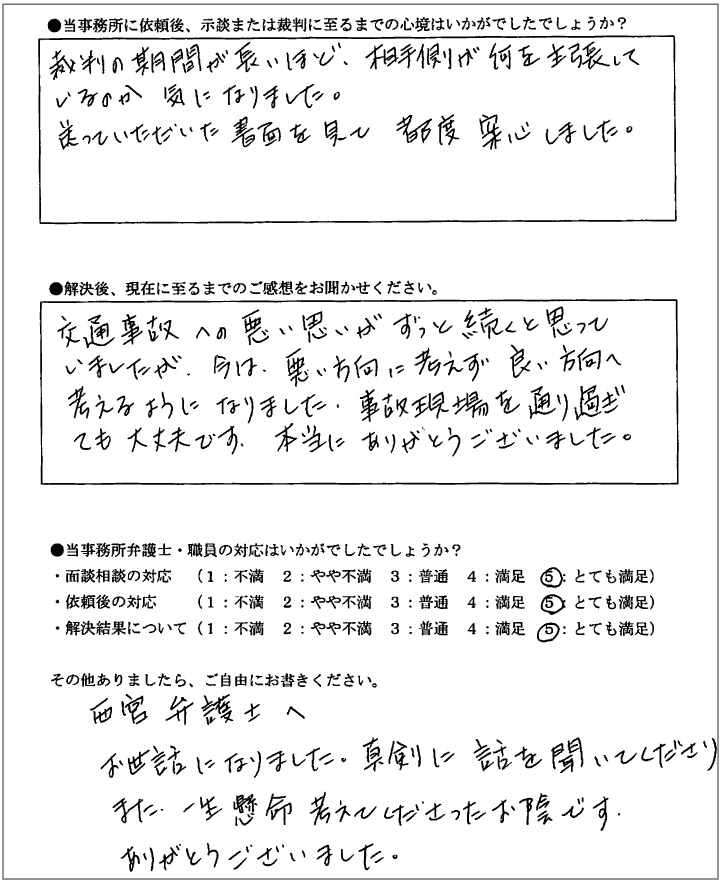 ●当事務所に依頼後、示談または裁判に至るまでの心境はいかがでしたでしょうか？
裁判の期間が長いほど、相手側が何を主張して
いるのか気になりました。
送っていただいた書面を見て都度安心しました。
●解決後、現在に至るまでのご感想をお聞かせください。
交通事故への悪い思いがずっと続くと思って
いましたが、今は、悪い方向に考えず良い方向へ
考えるようになりました。事故現場を通り過ぎ
ても大丈夫です。本当にありがとうございました。
●当事務所弁護士・職員の対応はいかがでしたでしょうか？
・面談相談の対応 （１：不満 ２：やや不満 ３：普通 ４：満足 ５：とても満足）
・依頼後の対応 （１：不満 ２：やや不満 ３：普通 ４：満足 ５：とても満足）
・解決結果について（１：不満 ２：やや不満 ３：普通 ４：満足 ５：とても満足）
その他ありましたら、ご自由にお書きください。
西宮弁護士へ
お世話になりました。真剣に話を聞いてくださり
また、一生懸命考えてくださったお陰です。
ありがとうございました。